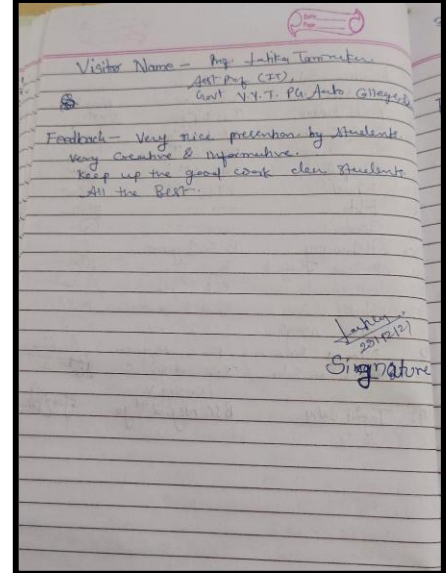 Date
Page
Visitor Name - Prof. Latika Tamrakar
Asst Prof (IT),
Govt V.Y.T. PG Auto College
Feedback - Very nice presention by students.
very creative & Informative.
Keep up the good work dear students
All the Best.
Singnature